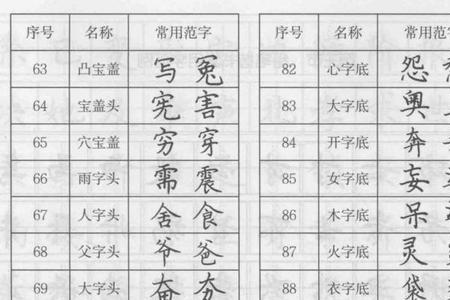 序号 名称 常用范字
63 凸宝盖 写 冤
64 宝盖头 宪 害
65 穴宝盖 穷 穿
66 雨字头 需 震
67 人字头 舍 食
68 父字头 爷 爸
69 大字头 奋 夯
序号 名称 常用范字
82 心字底 怨
83 大字底 奥
84 开字底 弃
85 女字底 妄
86 木字底 呆
87 火字底 灵
88 衣字底 袋